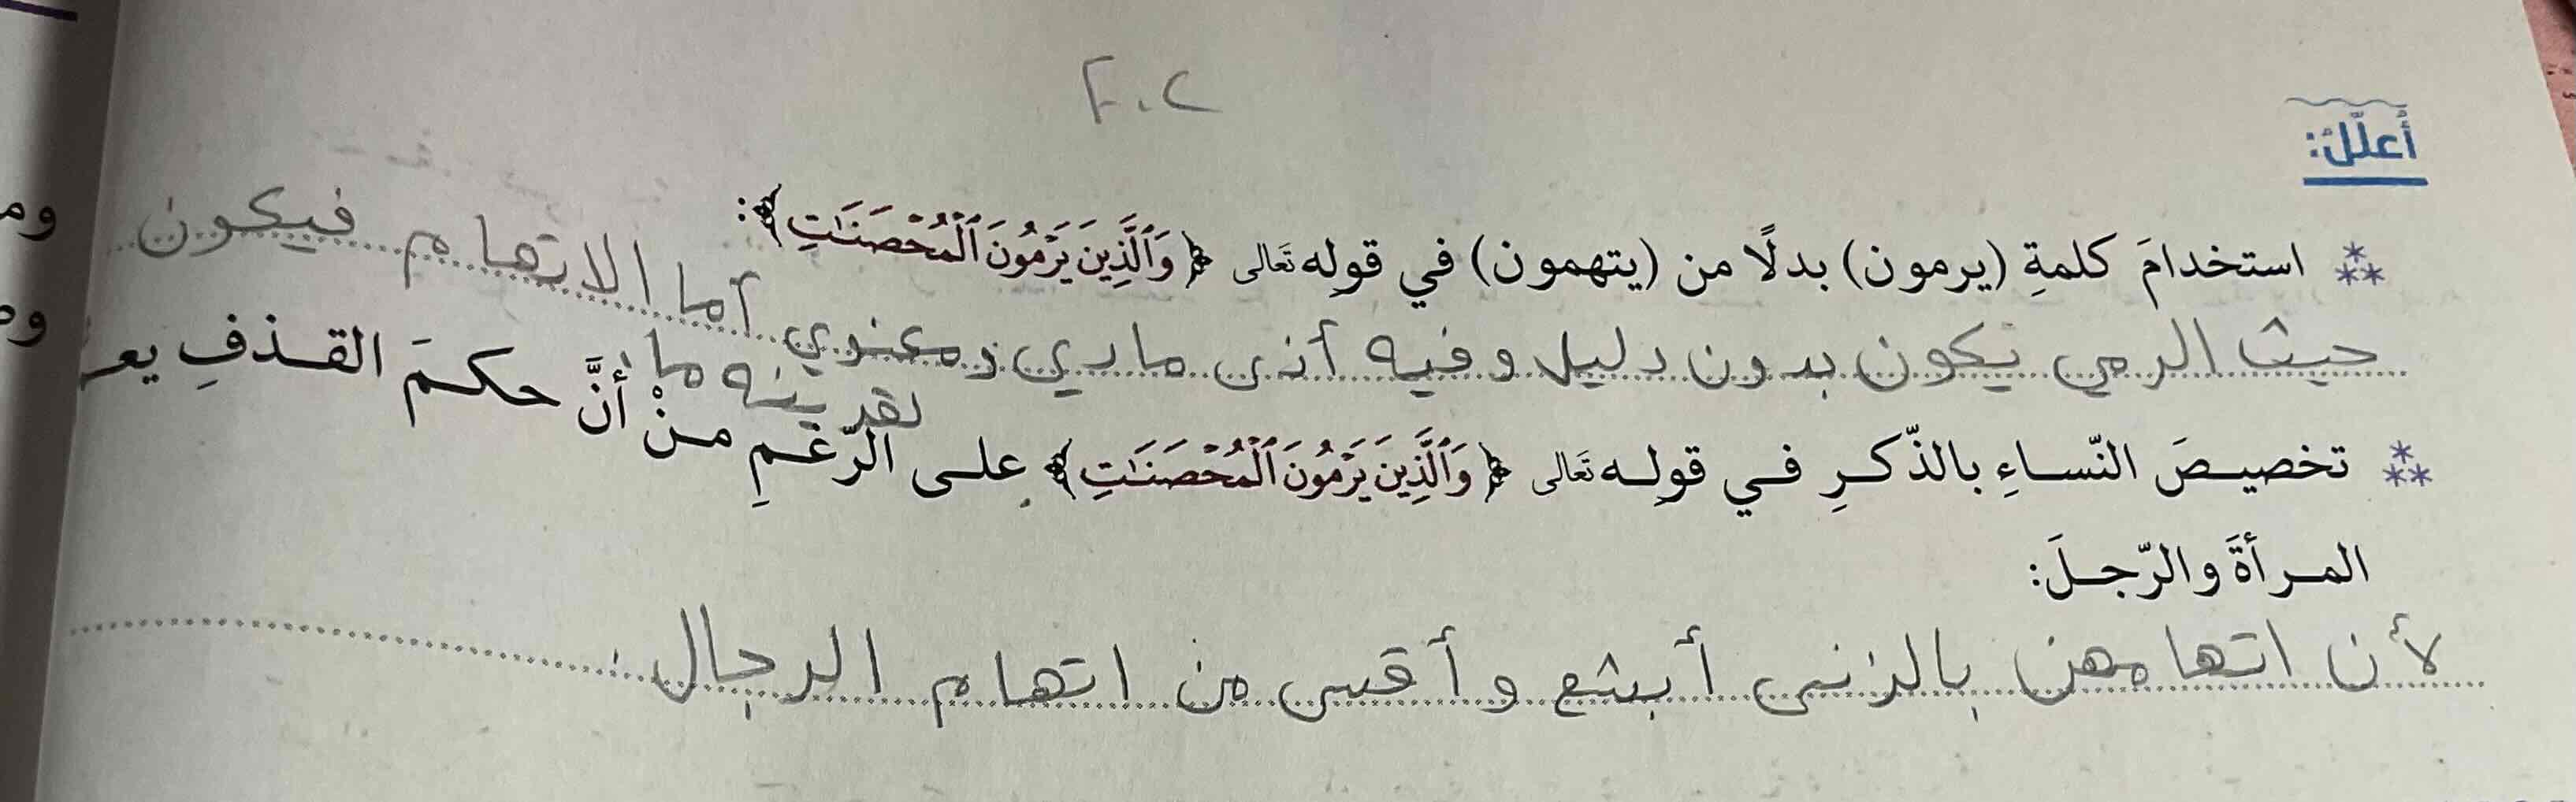 ٢٠٢
أُعلّل:
⁂ استخدامَ كلمةِ (يرمون) بدلًا من (يتهمون) في قوله تَعَالى ﴿وَٱلَّذِينَ يَرْمُونَ ٱلْمُحْصَنَٰتِ﴾:
حيث الرمي يكون بدون دليل و فيه أذى مادي ومعنوي أما الاتهام فيكون
لقرينه ما
⁂ تخصيصَ النّساءِ بالذّكرِ في قوله تَعَالى ﴿وَٱلَّذِينَ يَرْمُونَ ٱلْمُحْصَنَٰتِ﴾ على الرّغمِ منْ أنَّ حكمَ القذفِ يع
المرأةَ والرّجلَ:
لأن اتهامهن بالزنى أبشع و أقسى من اتهام الرجال.